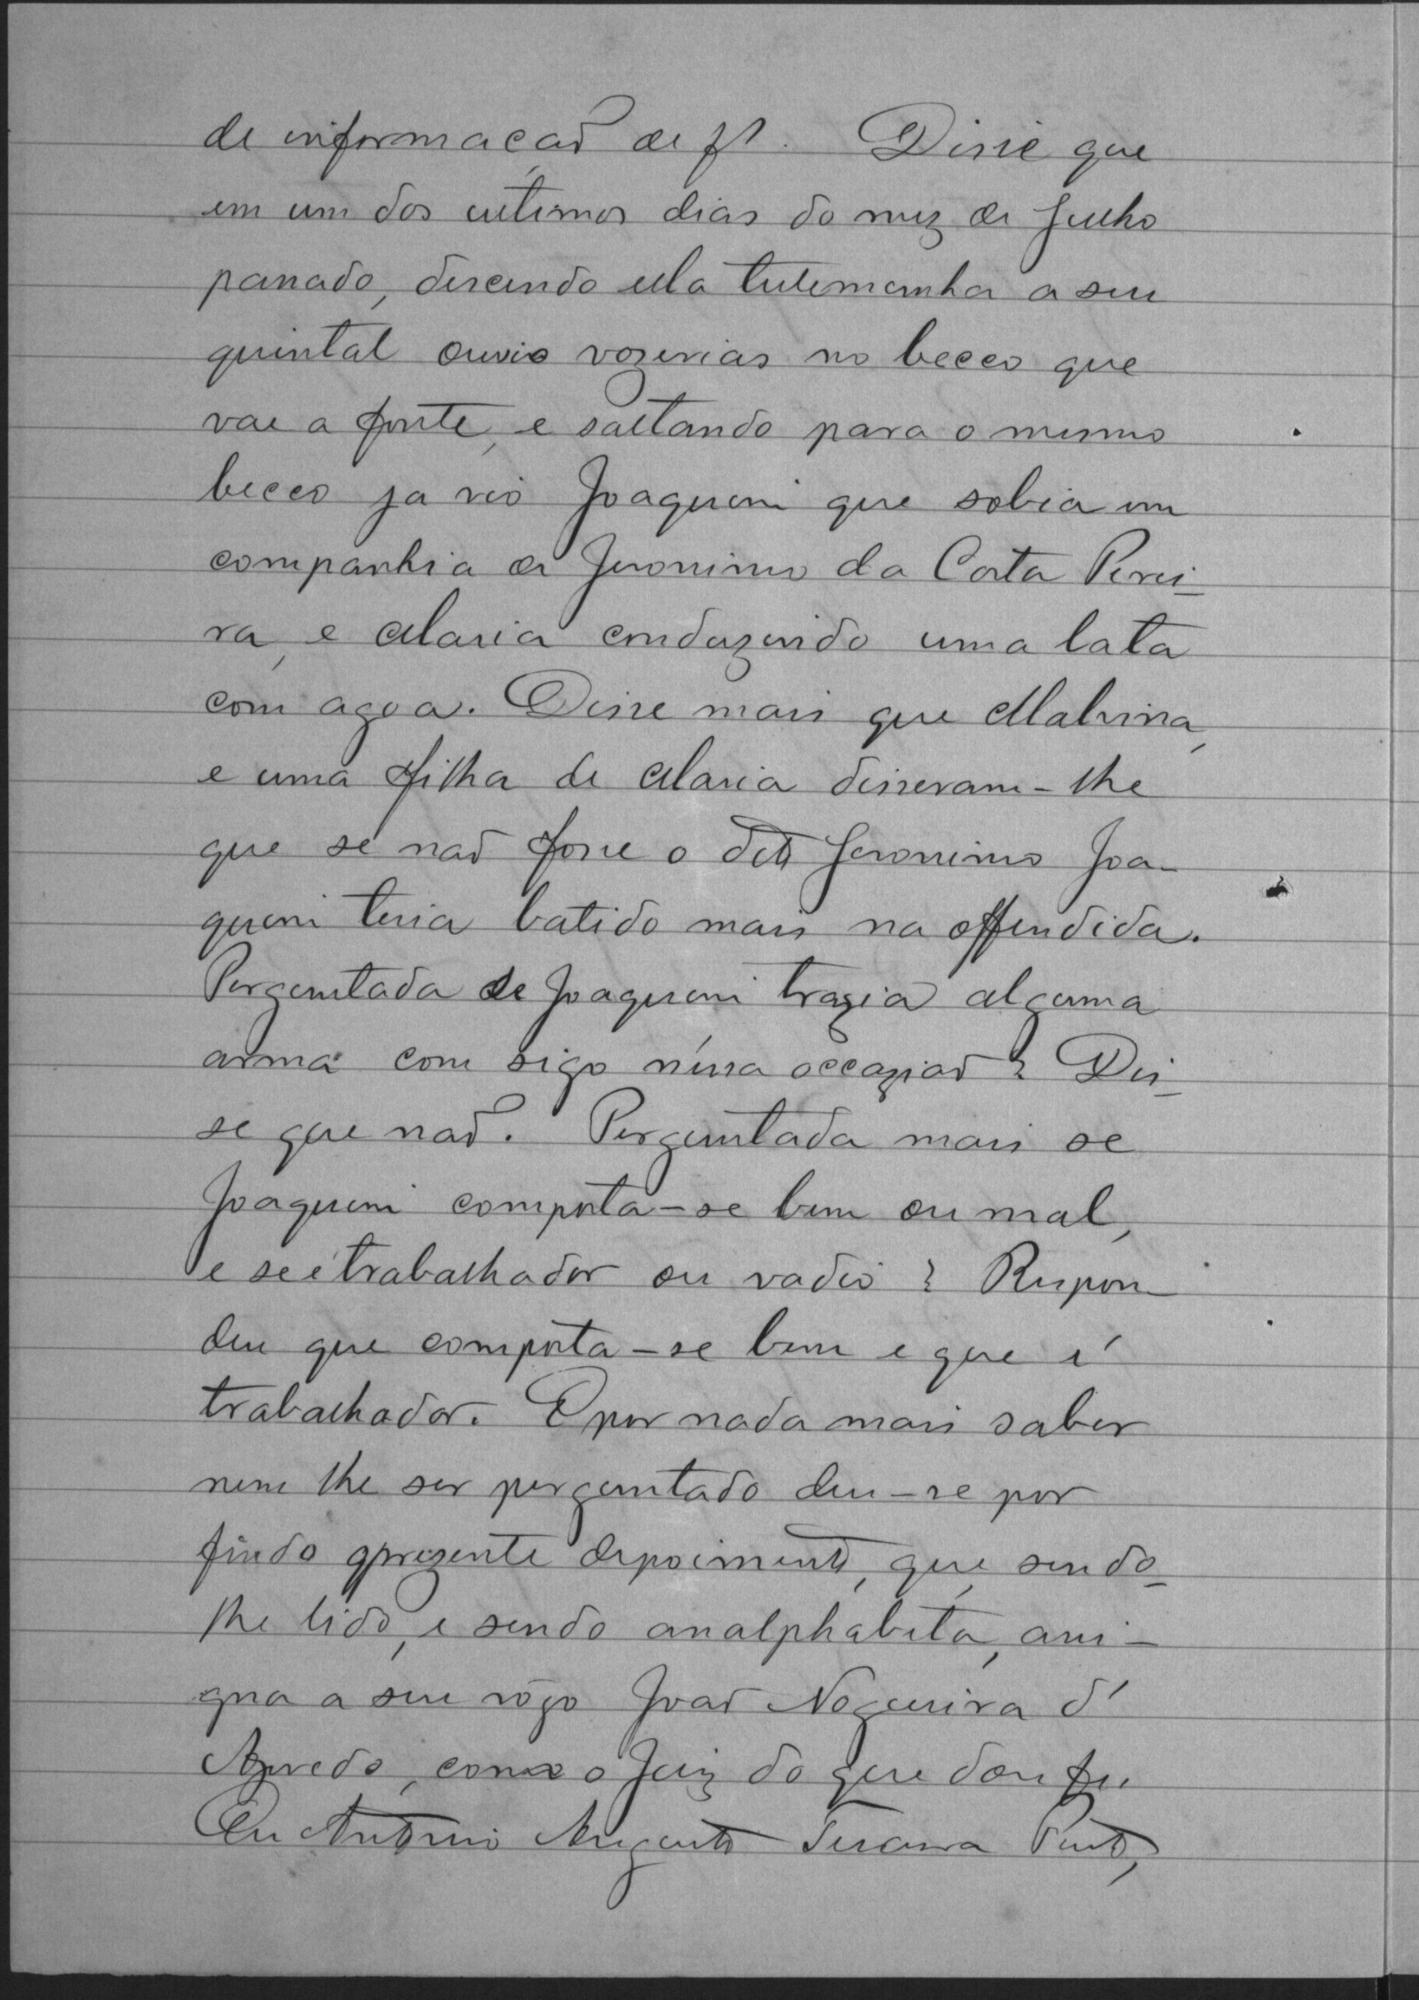 de informação de fl. Disse que
em um dos ultimos dias do mez de Julho
passado, descendo ella testemunha a seu
quintal ouvio vozerias no becco que
vae a fonte, e saltando para o mesmo
becco ja vio Joaquim que sobia em
companhia de Jeronimo da Costa Perei-
ra, e Maria conduzindo uma lata
com agoa. Disse mais que Malvina,
e uma filha de Maria disseram-lhe
que se não fosse o dito Jeronimo Joa-
quim teria batido mais na offendida.
Perguntada se Joaquim trazia alguma
arma com sigo n'essa occazião? Dis-
se que não. Perguntada mais se
Joaquim comporta-se bem ou mal,
e se é trabalhador ou vadio? Respon-
deu que comporta-se bem e que é
trabalhador. E por nada mais saber
nem lhe ser perguntado deu-se por
findo o prezente depoimento, que, sendo-
lhe lido, e sendo analphabeta, assi-
gna a seu rôgo João Nogueira d'
Azevedo, com o Juiz do que dou fé.
Eu Antonio Augusto Pinto,